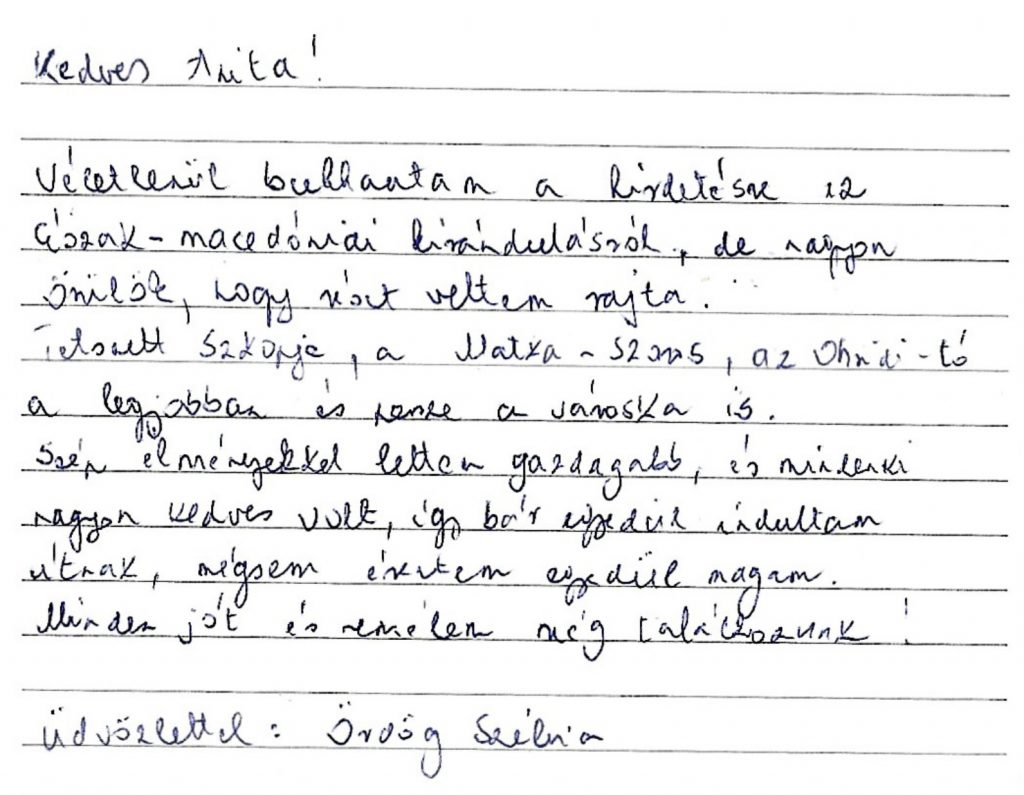 Kedves Anita!
Véletlenül bukkantam a hirdetésre az
Észak-macedóniai kirándulásról, de nagyon
örülök, hogy részt vettem rajta.
Tetszett Szkopje, a Matka-szoros, az Ohridi-tó
a legjobban és persze a városka is.
Szép élményekkel lettem gazdagabb, és mindenki
nagyon kedves volt, így bár egyedül indultam
útnak, mégsem éreztem egyedül magam.
Minden jót és remélem még találkozunk!
Üdvözlettel: Ördög Szilvia